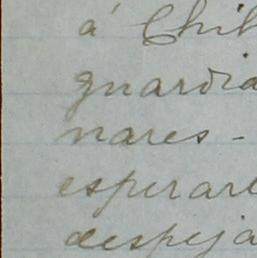 á Chil
guardia
nares -
esperar
despeja